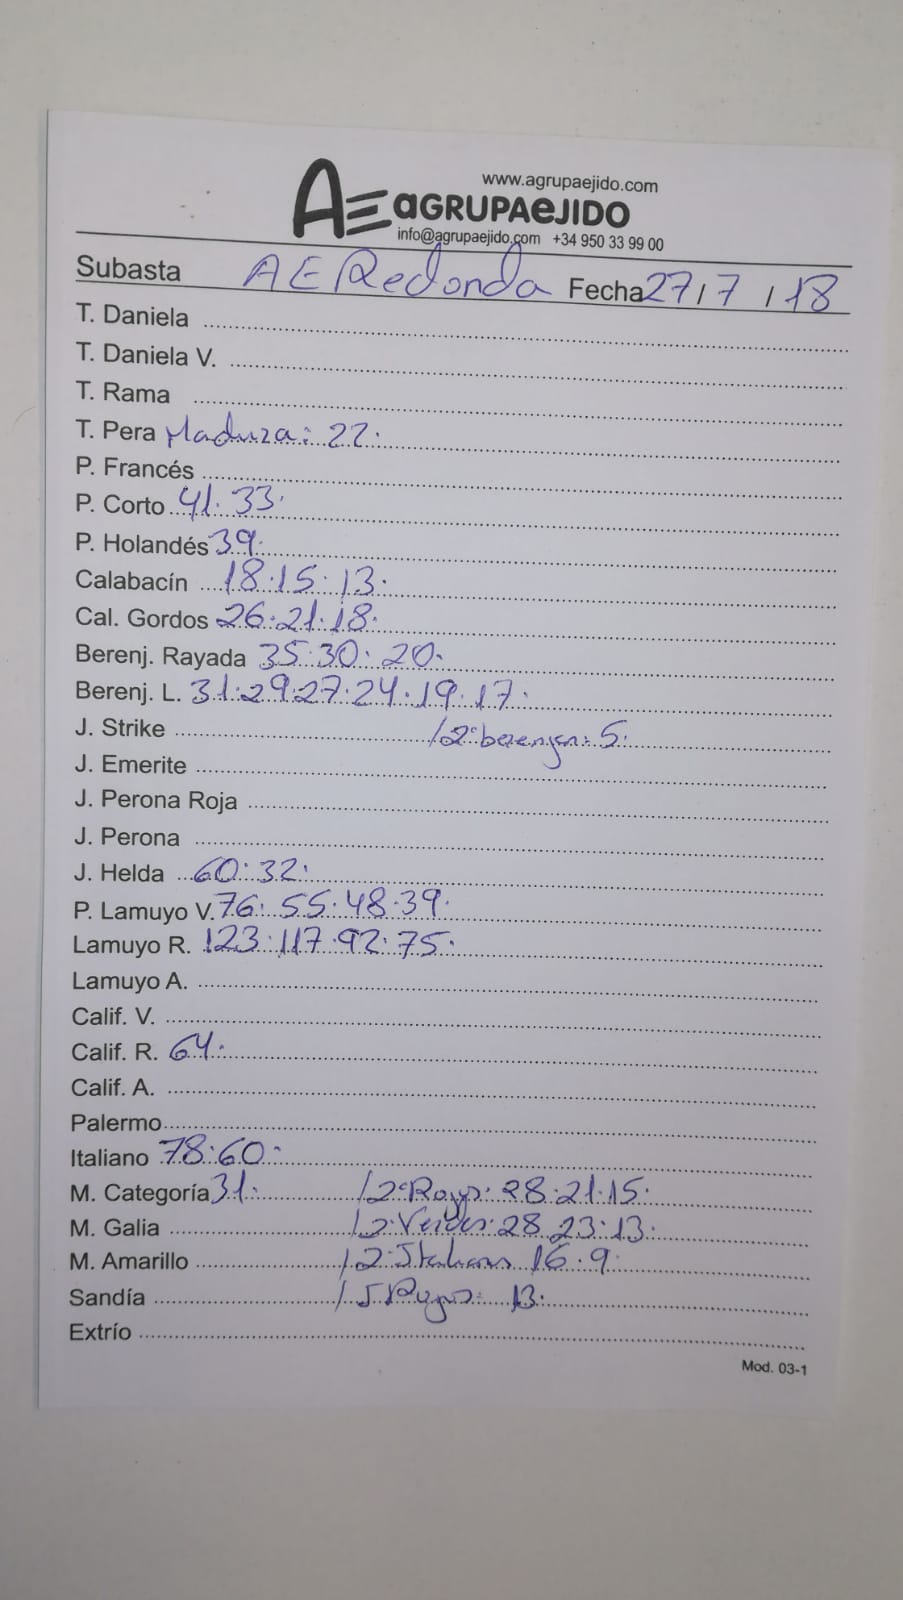 www.agrupaejido.com
AE aGRUPAeJIDO
info@agrupaejido.com +34 950 33 99 00
Subasta AE Redonda Fecha 27/7/18
T. Daniela
T. Daniela V.
T. Rama
T. Pera Madura: 22.
P. Francés
P. Corto 41. 33.
P. Holandés 39.
Calabacín 18.15.13.
Cal. Gordos 26.21.18.
Berenj. Rayada 35.30.20.
Berenj. L. 31.29.27.24.19.17.
J. Strike /2ª berenjen: 5.
J. Emerite
J. Perona Roja
J. Perona
J. Helda 60.32.
P. Lamuyo V. 76. 55.48.39.
Lamuyo R. 123.117.92.75.
Lamuyo A.
Calif. V.
Calif. R. 64.
Calif. A.
Palermo
Italiano 78.60.
M. Categoría 31. /2ª Rojos. 28.21.15.
M. Galia /2. Verdes: 28 23.13.
M. Amarillo /2 Italianos 16.9.
Sandía / Rojos: 13.
Extrío
Mod. 03-1